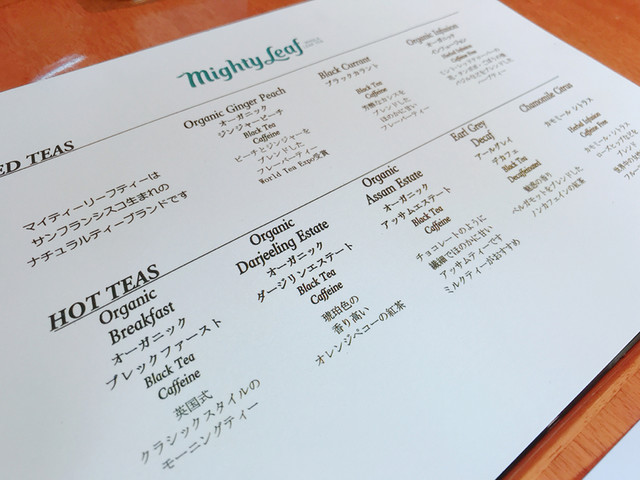 Mighty Leaf
ED TEAS
マイティーリーフティーは
サンフランシスコ生まれの
ナチュラルティーブランドです
Organic Ginger Peach
オーガニック
ジンジャーピーチ
Black Tea
Caffeine
ピーチとジンジャーを
ブレンドした
フレーバーティー
World Tea Expo受賞
Black Currant
ブラックカラント
Black Tea
Caffeine
芳醇なカシスを
ブレンドした
ほのかに甘い
フレーバーティー
Organic Infusion
オーガニック
インフュージョン
Herbal Infusion
Caffeine Free
ハーブティー
HOT TEAS
Organic
Breakfast
オーガニック
ブレックファースト
Black Tea
Caffeine
英国式
クラシックスタイルの
モーニングティー
Organic
Darjeeling Estate
オーガニック
ダージリンエステート
Black Tea
Caffeine
琥珀色の
香り高い
オレンジペコーの紅茶
Organic
Assam Estate
オーガニック
アッサムエステート
Black Tea
Caffeine
チョコレートのように
繊細でほのかに甘い
アッサムティーです
ミルクティーがおすすめ
Earl Grey
Decaf
アールグレイ
デカフェ
Black Tea
Decaffeinated
魅惑の香り
ベルガモットをブレンドした
ノンカフェインの紅茶
Chamomile Citrus
カモミール シトラス
Herbal Infusion
Caffeine Free